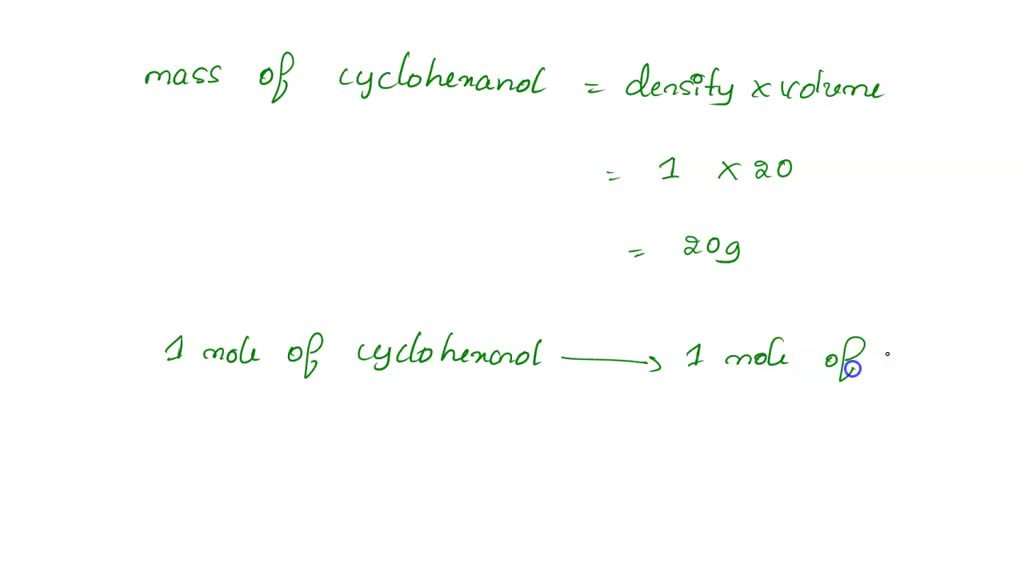 mass of cyclohexanol = density x volume
= 1 x 20
= 20g
1 mole of cyclohexanol → 1 mole of